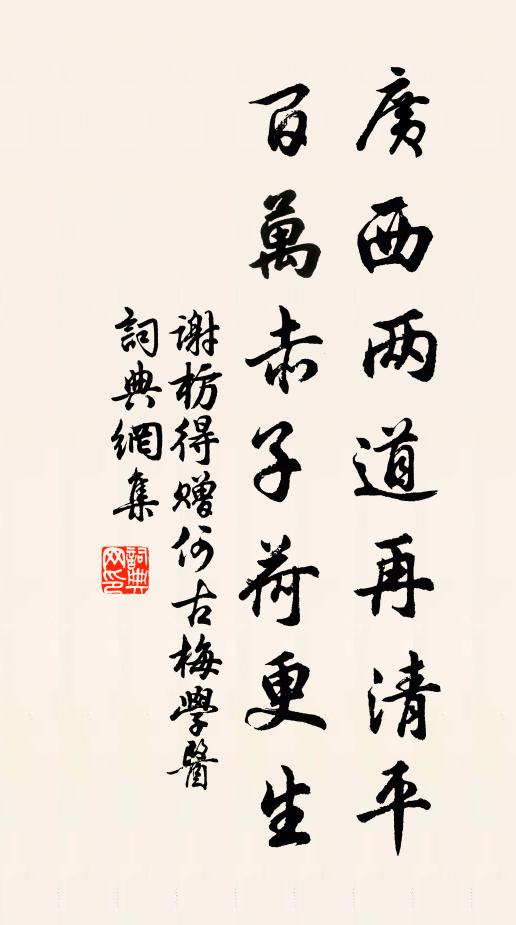 廣西兩道再清平
百萬赤子荷更生
谢枋得贈何古梅學醫
詞典網集
詞典网印